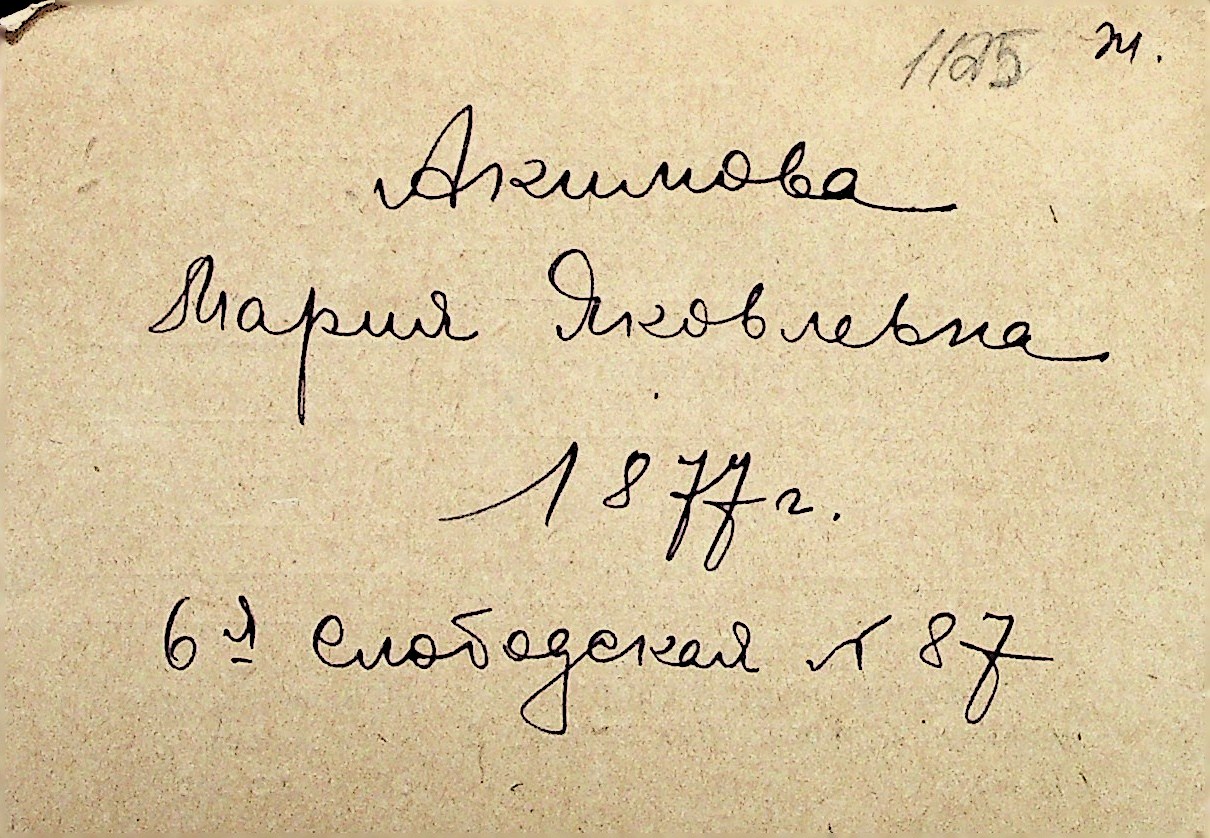 1125 т.
Акимова
Мария Яковлевна
1877 г.
6я Слободская № 87